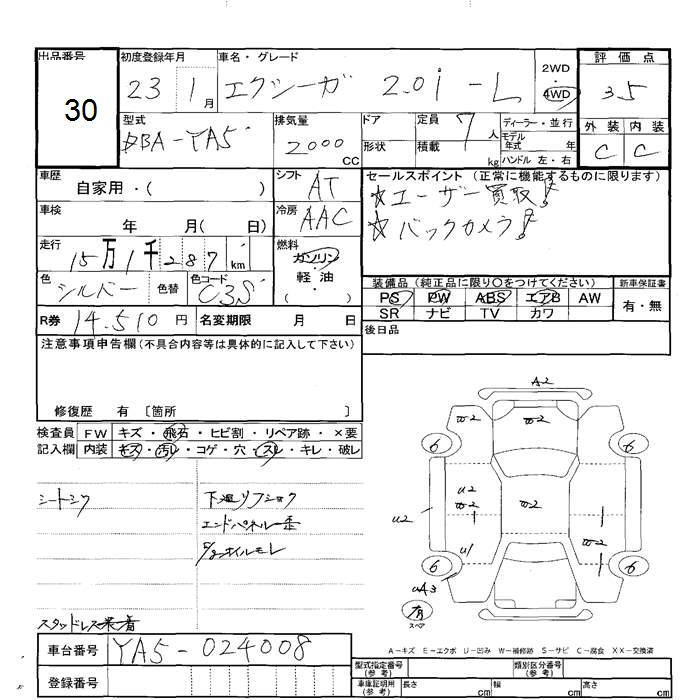 出品番号 初度登録年月 車名・グレード 評価点
30 23 1月 エクシーガ 2.0i-L 2WD 4WD 3.5
型式 排気量 ドア 定員 7人 ディーラー・並行 外装 内装
DBA-YA5 2000cc 形状 積載 kg モデル年式 年 C C
ハンドル 左・右
車歴 シフト セールスポイント (正常に機能するものに限ります)
自家用・( ) AT ☆ユーザー買取!
車検 冷房 ☆バックカメラ!
年 月( 日) AAC
走行 燃料
15万1千287km ガソリン・軽油・
色 色替 色コード 装備品 (純正品に限り〇をつけてください) 新車保証書
シルバー C3S PS PW ABS エアB AW 有・無
R券 14.510円 名変期限 月 日 SR ナビ TV カワ
注意事項申告欄(不具合内容等は具体的に記入して下さい) 後日品
修復歴 有 〔箇所 〕
検査員 FW キズ・飛石・ヒビ割・リペア跡・×要
記入欄 内装 キズ・汚レ・コゲ・穴・スレ・キレ・破レ
シートシワ 下廻リフショク
エンドパネル
オイルモレ
A2
W2 W2 W2
6 6
U2 U2 W2 W2
W2
U1
6 6
有
スペア
スタッドレス
A-キズ E-エクボ U-凹み W-補修跡 S-サビ C-腐食 XX-交換済
車台番号 YA5-024008 型式指定番号(参考) 類別区分番号(参考)
登録番号 車庫証明用(参考) 長さ cm 幅 cm 高さ cm